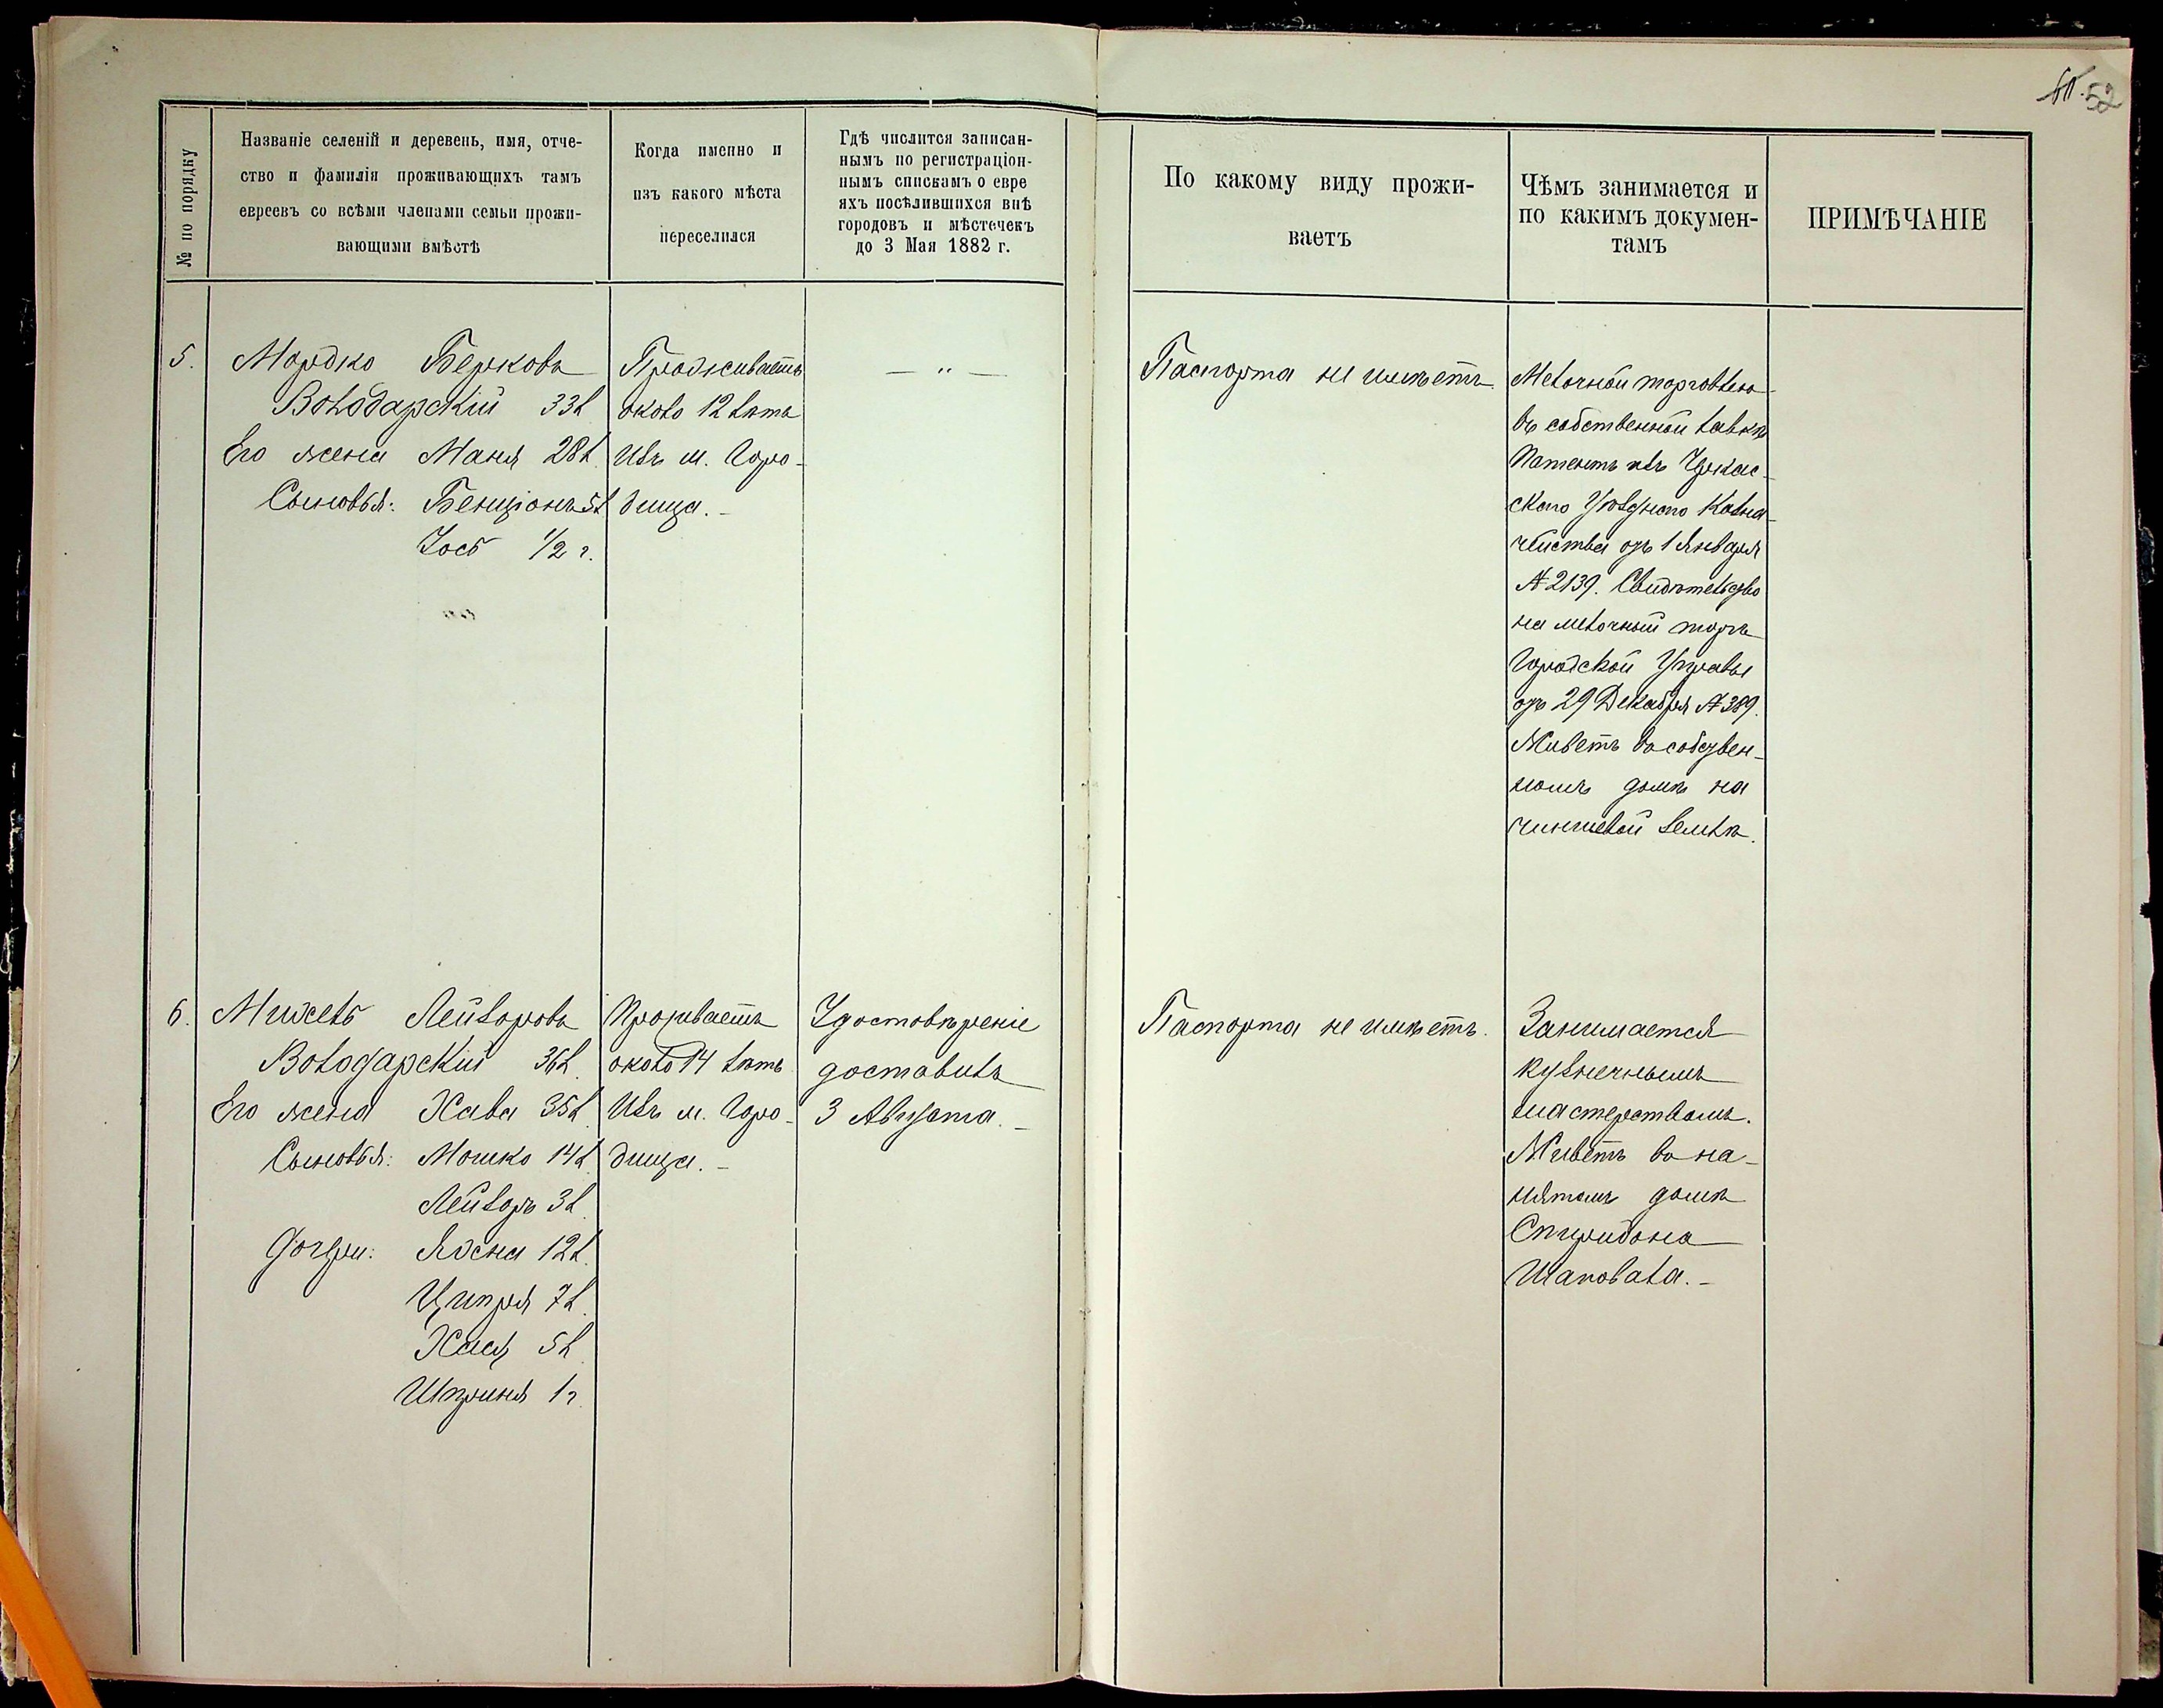 52
№ по порядку
Названіе селеній и деревень, имя, отче-
ство и фамилія проживающихъ тамъ
евреевъ со всѣми членами семьи прожи-
вающими вмѣстѣ
Когда именно и
изъ какого мѣста
переселился
Гдѣ числится записан-
нымъ по регистраціон-
нымъ спискамъ о евре
яхъ посѣлившихся внѣ
городовъ и мѣстечекъ
до 3 Мая 1882 г.
По какому виду прожи-
ваетъ
Чѣмъ занимается и
по какимъ докумен-
тамъ
ПРИМѢЧАНІЕ
5.
Мордко Берковъ
Володарскій 33л
Его жена Маня 28л.
Сыновья: Бенціонъ 5л
Іось 1/2 г.
Проживаетъ
около 12 лѣтъ
Изъ м. Горо-
дища.-
— „ —
Паспорта не имѣетъ
Мелочной торговлею
въ собственной лавкѣ
Патентъ изъ Черкас-
скаго Уѣзднаго Казна-
чейства отъ 1 Января
№ 2139. Свидѣтельство
на мелочный торгъ
Городской Управы
отъ 29 Декабря № 389.
Живетъ въ собствен-
номъ домѣ на
чиншевой землѣ.
6.
Мижель Лейзоровъ
Володарскій 36л.
Его жена Хава 35л.
Сыновья: Мошко 14л.
Лейзоръ 3л.
Дочери:
12л.
Ципря 7л.
Хася 5л.
Шприня 1г.
Проживаетъ
около 14 лѣтъ
Изъ м. Горо-
дища.-
Удостовѣреніе
доставилъ
3 Августа.-
Паспорта не имѣетъ.
Занимается
кузнечнымъ
мастерствомъ.
Живетъ въ на-
нятомъ домѣ
Спиридона
Шаповала.-